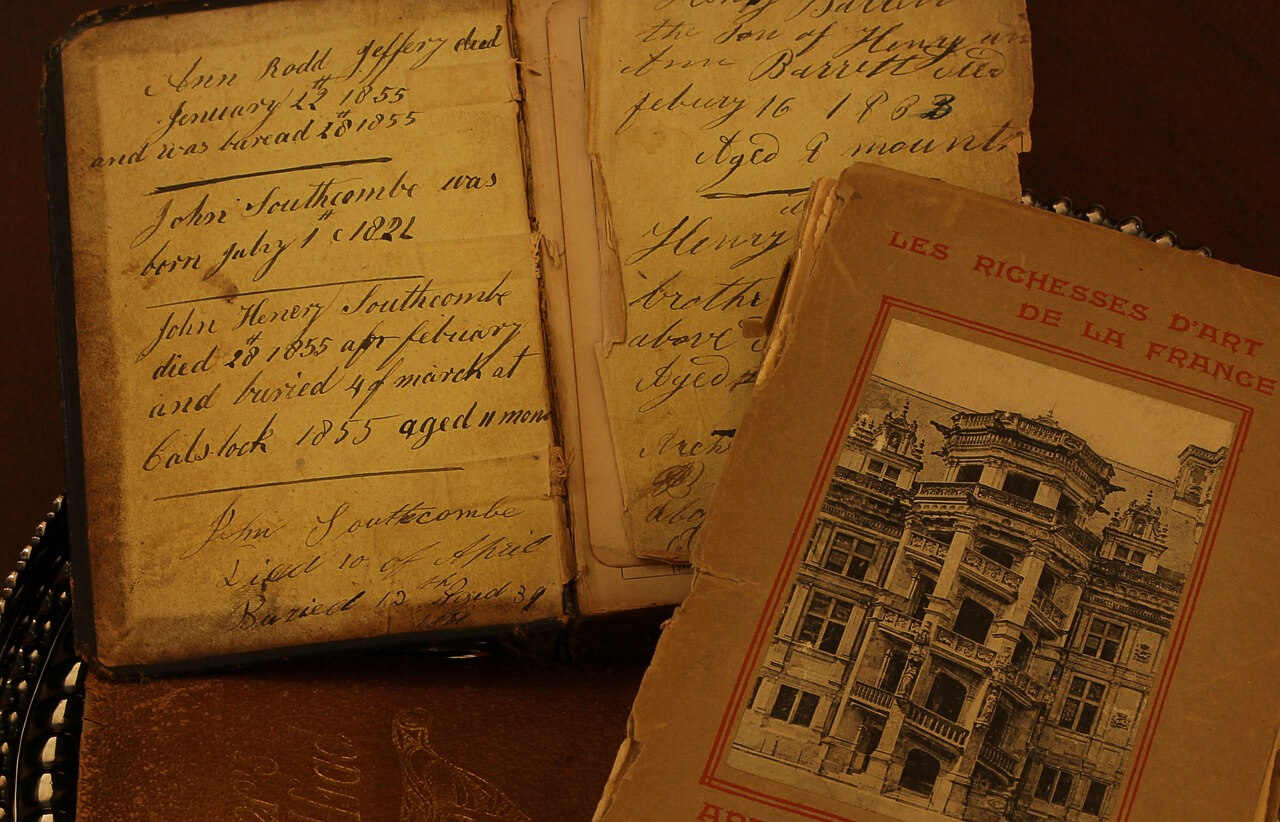 Ann Rodd Jeffery died
January 22th 1855
and was buread 28th 1855
John Southcombe was
born July 1st 1821
John Henery Southcombe
died 28th 1855 apr febuary
and buried 4 of march at
Calstock 1855 aged 11 mon
John Southcombe
Died 10 of April
Buried 12th Aged 39
Henry Barrett
the Son of Henry an
Ann Barrett died
febury 16 1883
Aged 9 mounts
Henry
brothe
above
Aged
Arch
abo
LES RICHESSES D'ART
DE LA FRANCE